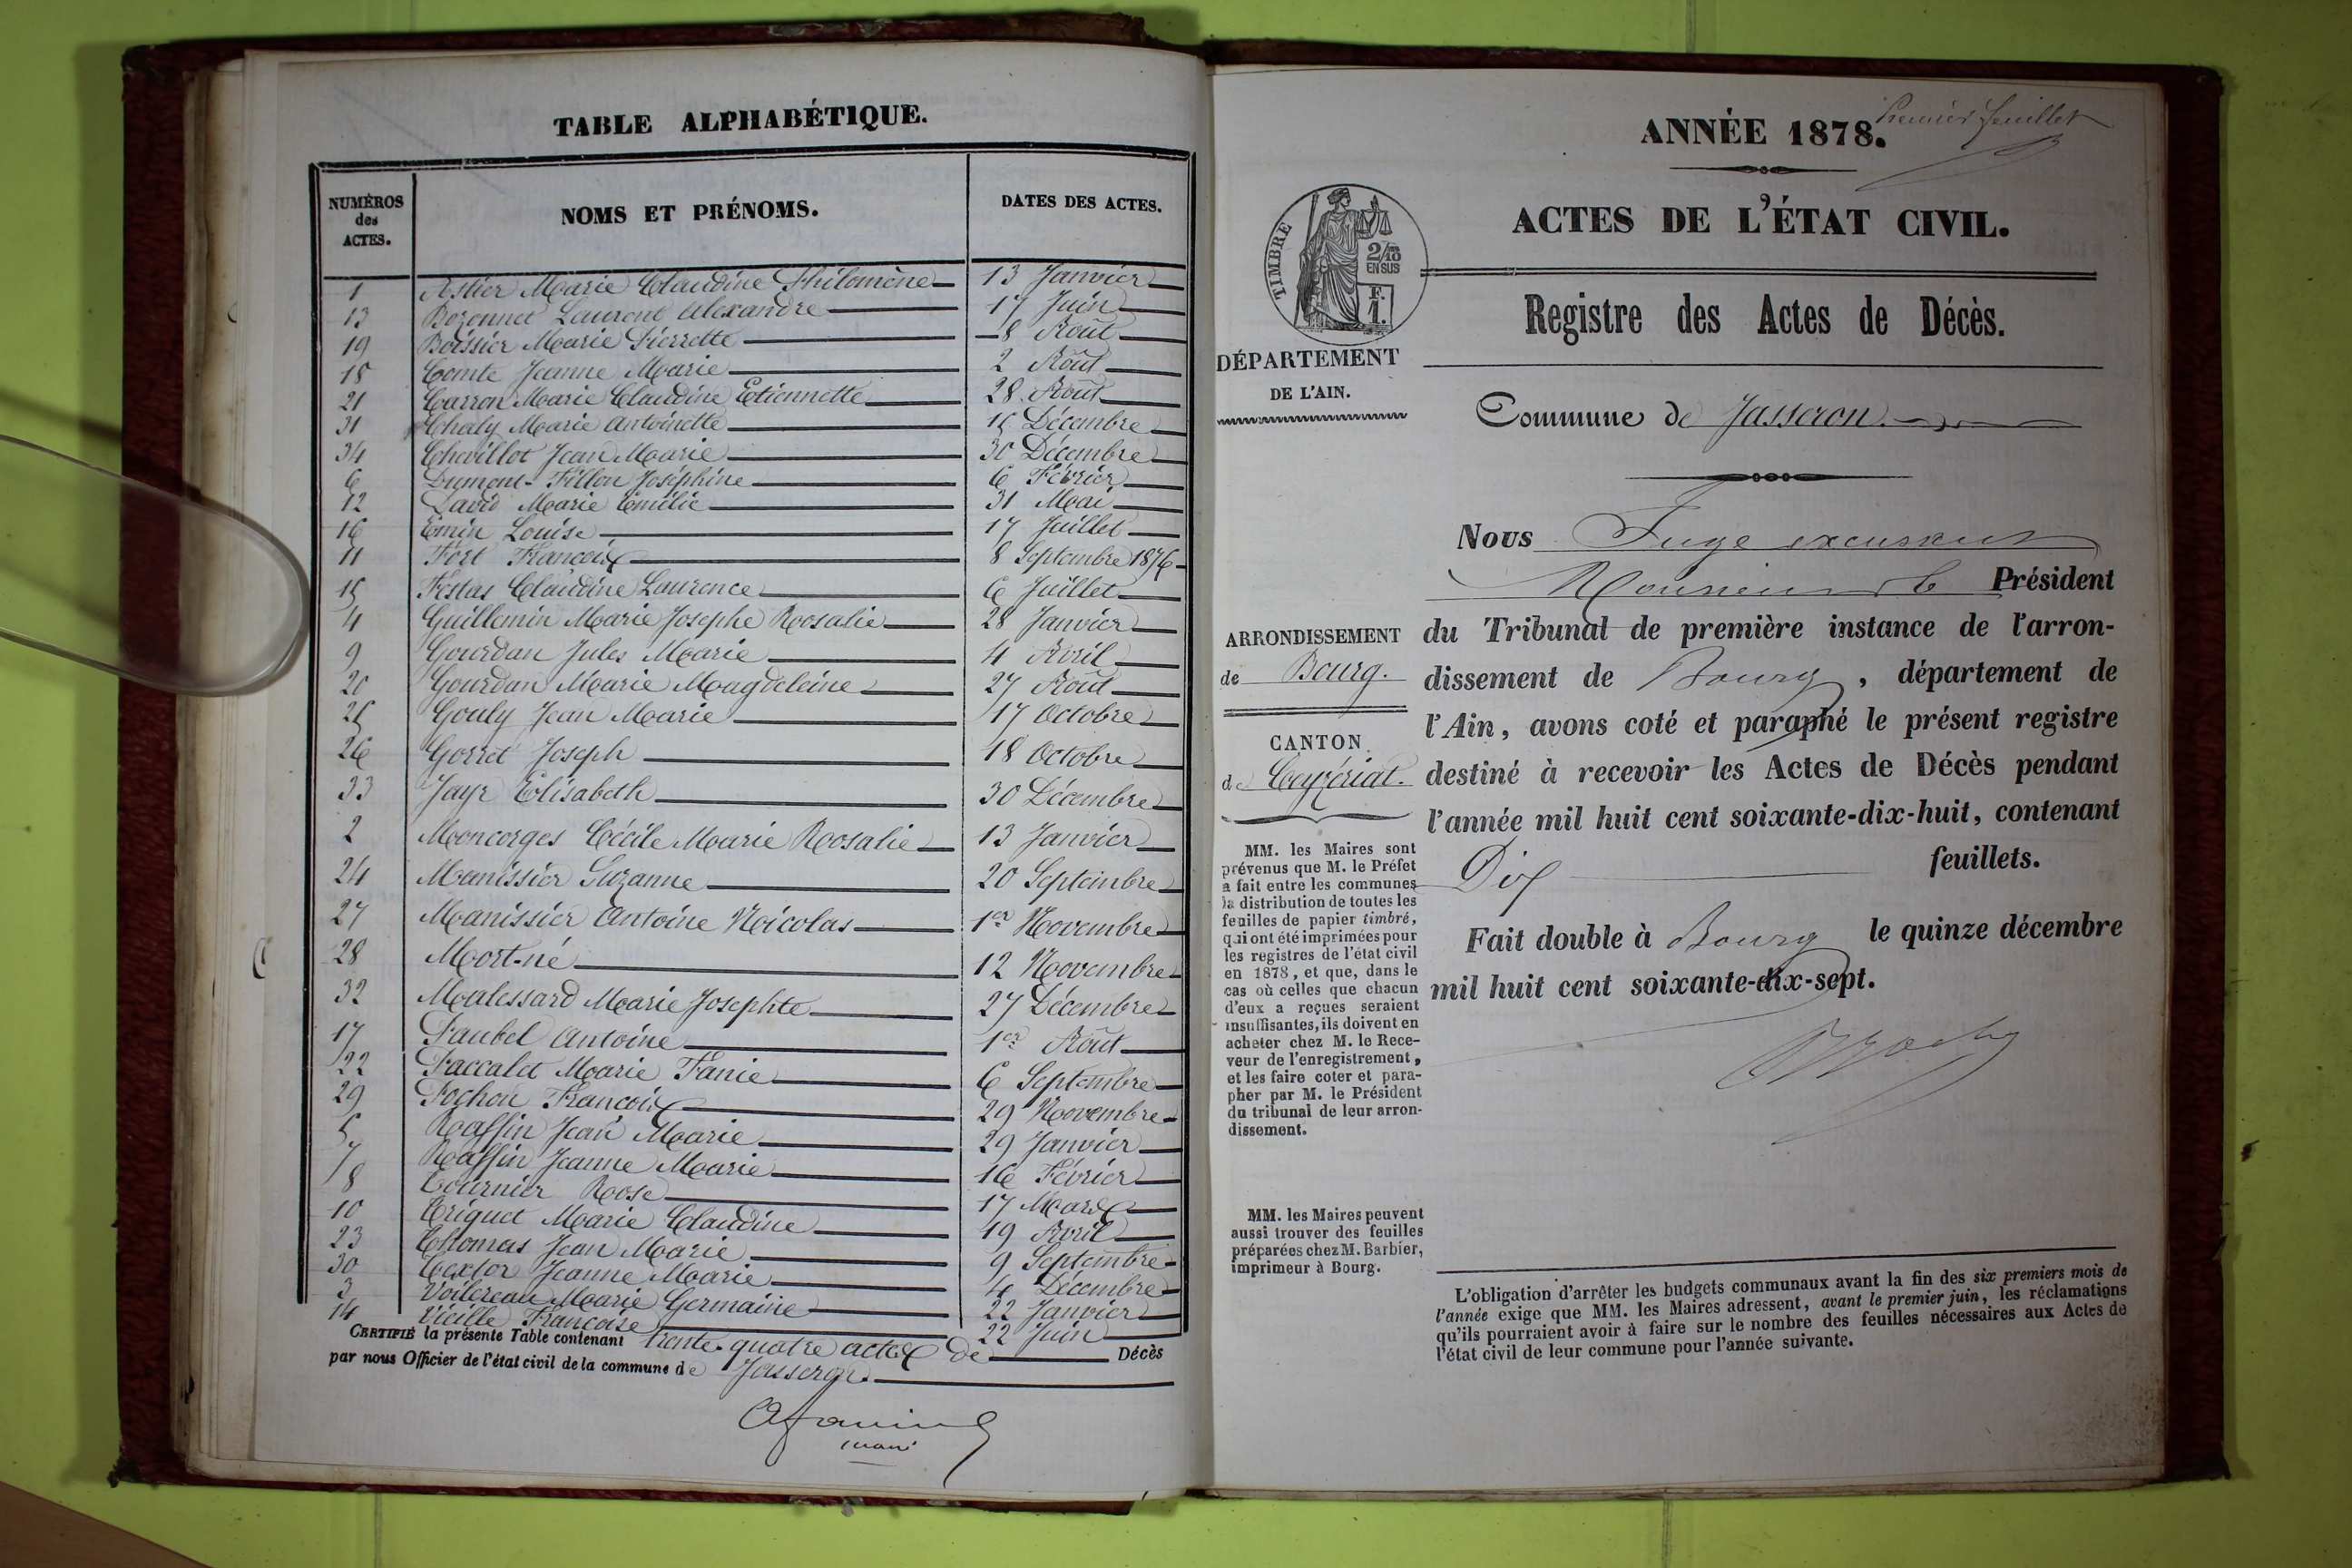 TABLE ALPHABÉTIQUE.
NUMÉROS des ACTES. NOMS ET PRÉNOMS. DATES DES ACTES.
1 Astier Marie Claudine Philomène 13 Janvier
13 Bozonnet Laurent Alexandre 17 Juin
19 Boissier Marie Pierrette 8 Août
18 Comte Jeanne Marie 2 Août
21 Carron Marie Claudine Etiennette 28 Août
31 Chaly Marie Antoinette 15 Décembre
34 Chevillot Jean Marie 30 Décembre
6 Dumont-Fillon Joséphine 6 Février
12 David Marie Emélie 31 Mai
16 Emin Louise 17 Juillet
11 Fort François 8 Septembre 1876
15 Festas Claudine Laurence 6 Juillet
4 Guillemin Marie Josephe Rosalie 28 Janvier
9 Gourdan Jules Marie 4 Avril
20 Gourdan Marie Magdeleine 27 Août
25 Gouly Jean Marie 17 Octobre
26 Gorret Joseph 18 Octobre
33 Jayr Elisabeth 30 Décembre
2 Moncorges Cécile Marie Rosalie 13 Janvier
24 Manissier Suzanne 20 Septembre
27 Manissier Antoine Nicolas 1er Novembre
28 Mort-né 12 Novembre
32 Molessard Marie Josephte 27 Décembre
17 Paubel Antoine 1er Août
22 Paccalet Marie Fanie 6 Septembre
29 Pochon François 29 Novembre
5 Raffin Jean Marie 29 Janvier
7 Raffin Jeanne Marie 16 Février
8 Tournier Rose 17 Mars
10 Triquet Marie Claudine 19 Avril
23 Thomas Jean Marie 9 Septembre
30 Textor Jeanne Marie 4 Décembre
3 Voilereau Marie Germaine 22 Janvier
14 Vieille Françoise 22 Juin
CERTIFIÉ la présente Table contenant trente-quatre actes de Décès
par nous Officier de l'état civil de la commune de Jasseron
maire
Premier feuillet
ANNÉE 1878.
ACTES DE L'ÉTAT CIVIL.
TIMBRE
2/10
EN SUS
F.
1.
Registre des Actes de Décès.
DÉPARTEMENT
DE L'AIN.
Commune de Jasseron
Nous Juge excusant
Monsieur le Président
du Tribunal de première instance de l'arron-
dissement de Bourg, département de
l'Ain, avons coté et paraphé le présent registre
destiné à recevoir les Actes de Décès pendant
l'année mil huit cent soixante-dix-huit, contenant
Dix feuillets.
Fait double à Bourg le quinze décembre
mil huit cent soixante-dix-sept.
ARRONDISSEMENT
de Bourg.
CANTON
de Ceyzériat.
MM. les Maires sont
prévenus que M. le Préfet
a fait entre les communes
la distribution de toutes les
feuilles de papier timbré,
qui ont été imprimées pour
les registres de l'état civil
en 1878, et que, dans le
cas où celles que chacun
d'eux a reçues seraient
insuffisantes, ils doivent en
acheter chez M. le Rece-
veur de l'enregistrement,
et les faire coter et para-
pher par M. le Président
du tribunal de leur arron-
dissement.
MM. les Maires peuvent
aussi trouver des feuilles
préparées chez M. Barbier,
imprimeur à Bourg.
L'obligation d'arrêter les budgets communaux avant la fin des six premiers mois de
l'année exige que MM. les Maires adressent, avant le premier juin, les réclamations
qu'ils pourraient avoir à faire sur le nombre des feuilles nécessaires aux Actes de
l'état civil de leur commune pour l'année suivante.